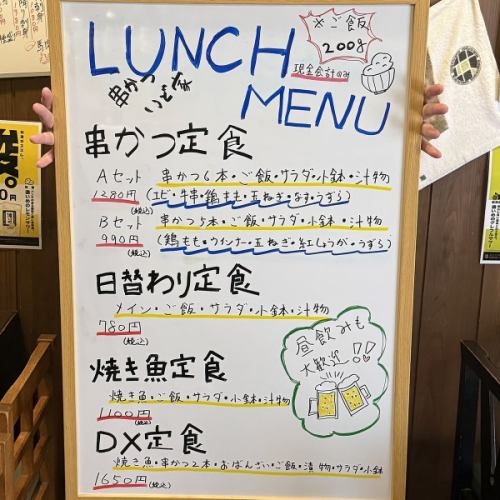 LUNCH
MENU
※ご飯
200g
現金会計のみ
串かつ
串かつ定食
Aセット 串かつ6本・ご飯・サラダ・小鉢・汁物
1280円(税込) (エビ・牛串・鶏もも・玉ねぎ・なす・うずら)
Bセット 串かつ5本・ご飯・サラダ・小鉢・汁物
990円(税込) (鶏もも・ウインナー・玉ねぎ・紅しょうが・うずら)
日替わり定食
メイン・ご飯・サラダ・小鉢・汁物
780円(税込)
昼飲みも
大歓迎!!
焼き魚定食
焼き魚・ご飯・サラダ・小鉢・汁物
1100円(税込)
DX定食
焼き魚・串かつ2本・おばんざい・ご飯・漬物・サラダ・小鉢
1650円(税込)